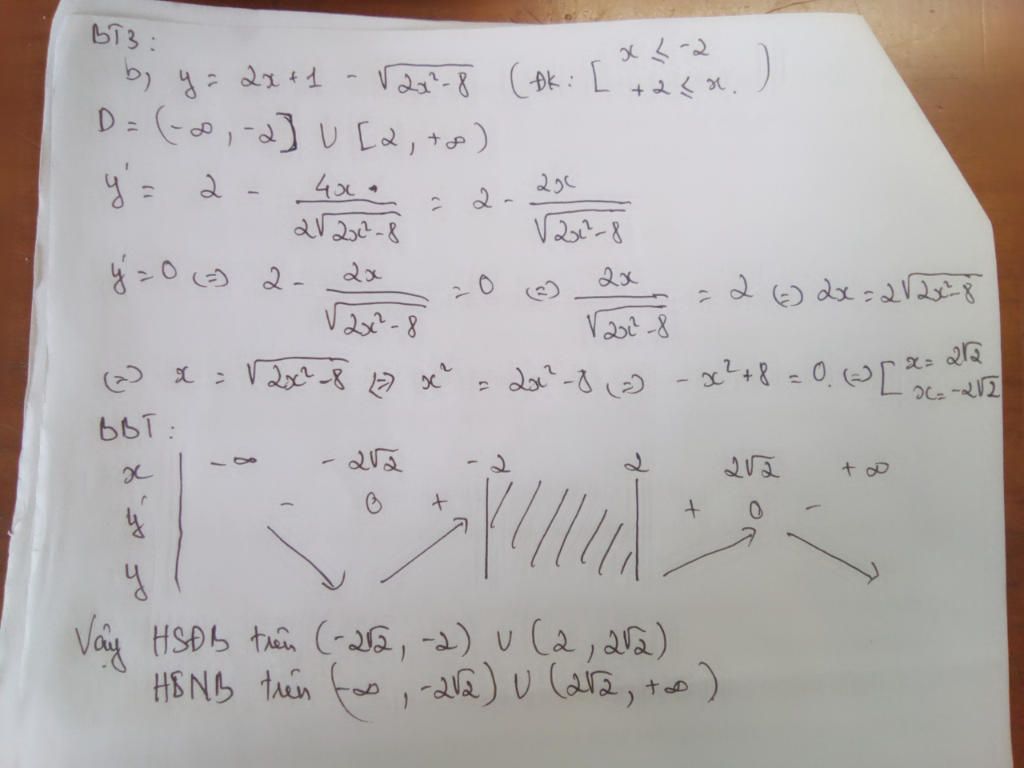 BT3 :
b, y = 2x+1 - √(2x²-8) (ĐK: [ x ≤ -2
+2 ≤ x. )
D = (-∞, -2] ∪ [2, +∞)
y' = 2 - 4x / 2√(2x²-8) = 2 - 2x / √(2x²-8)
y' = 0 (=) 2 - 2x / √(2x²-8) = 0 (=) 2x / √(2x²-8) = 2 (=) 2x = 2√(2x²-8)
(=) x = √(2x²-8) (=) x² = 2x²-8 (=) -x²+8 = 0. (=) [ x = 2√2
x = -2√2
BBT :
x -∞ -2√2 -2 2 2√2 +∞
y' - 0 + + 0 -
y
Vậy HSĐB trên (-2√2, -2) ∪ (2, 2√2)
HSNB trên (-∞, -2√2) ∪ (2√2, +∞)